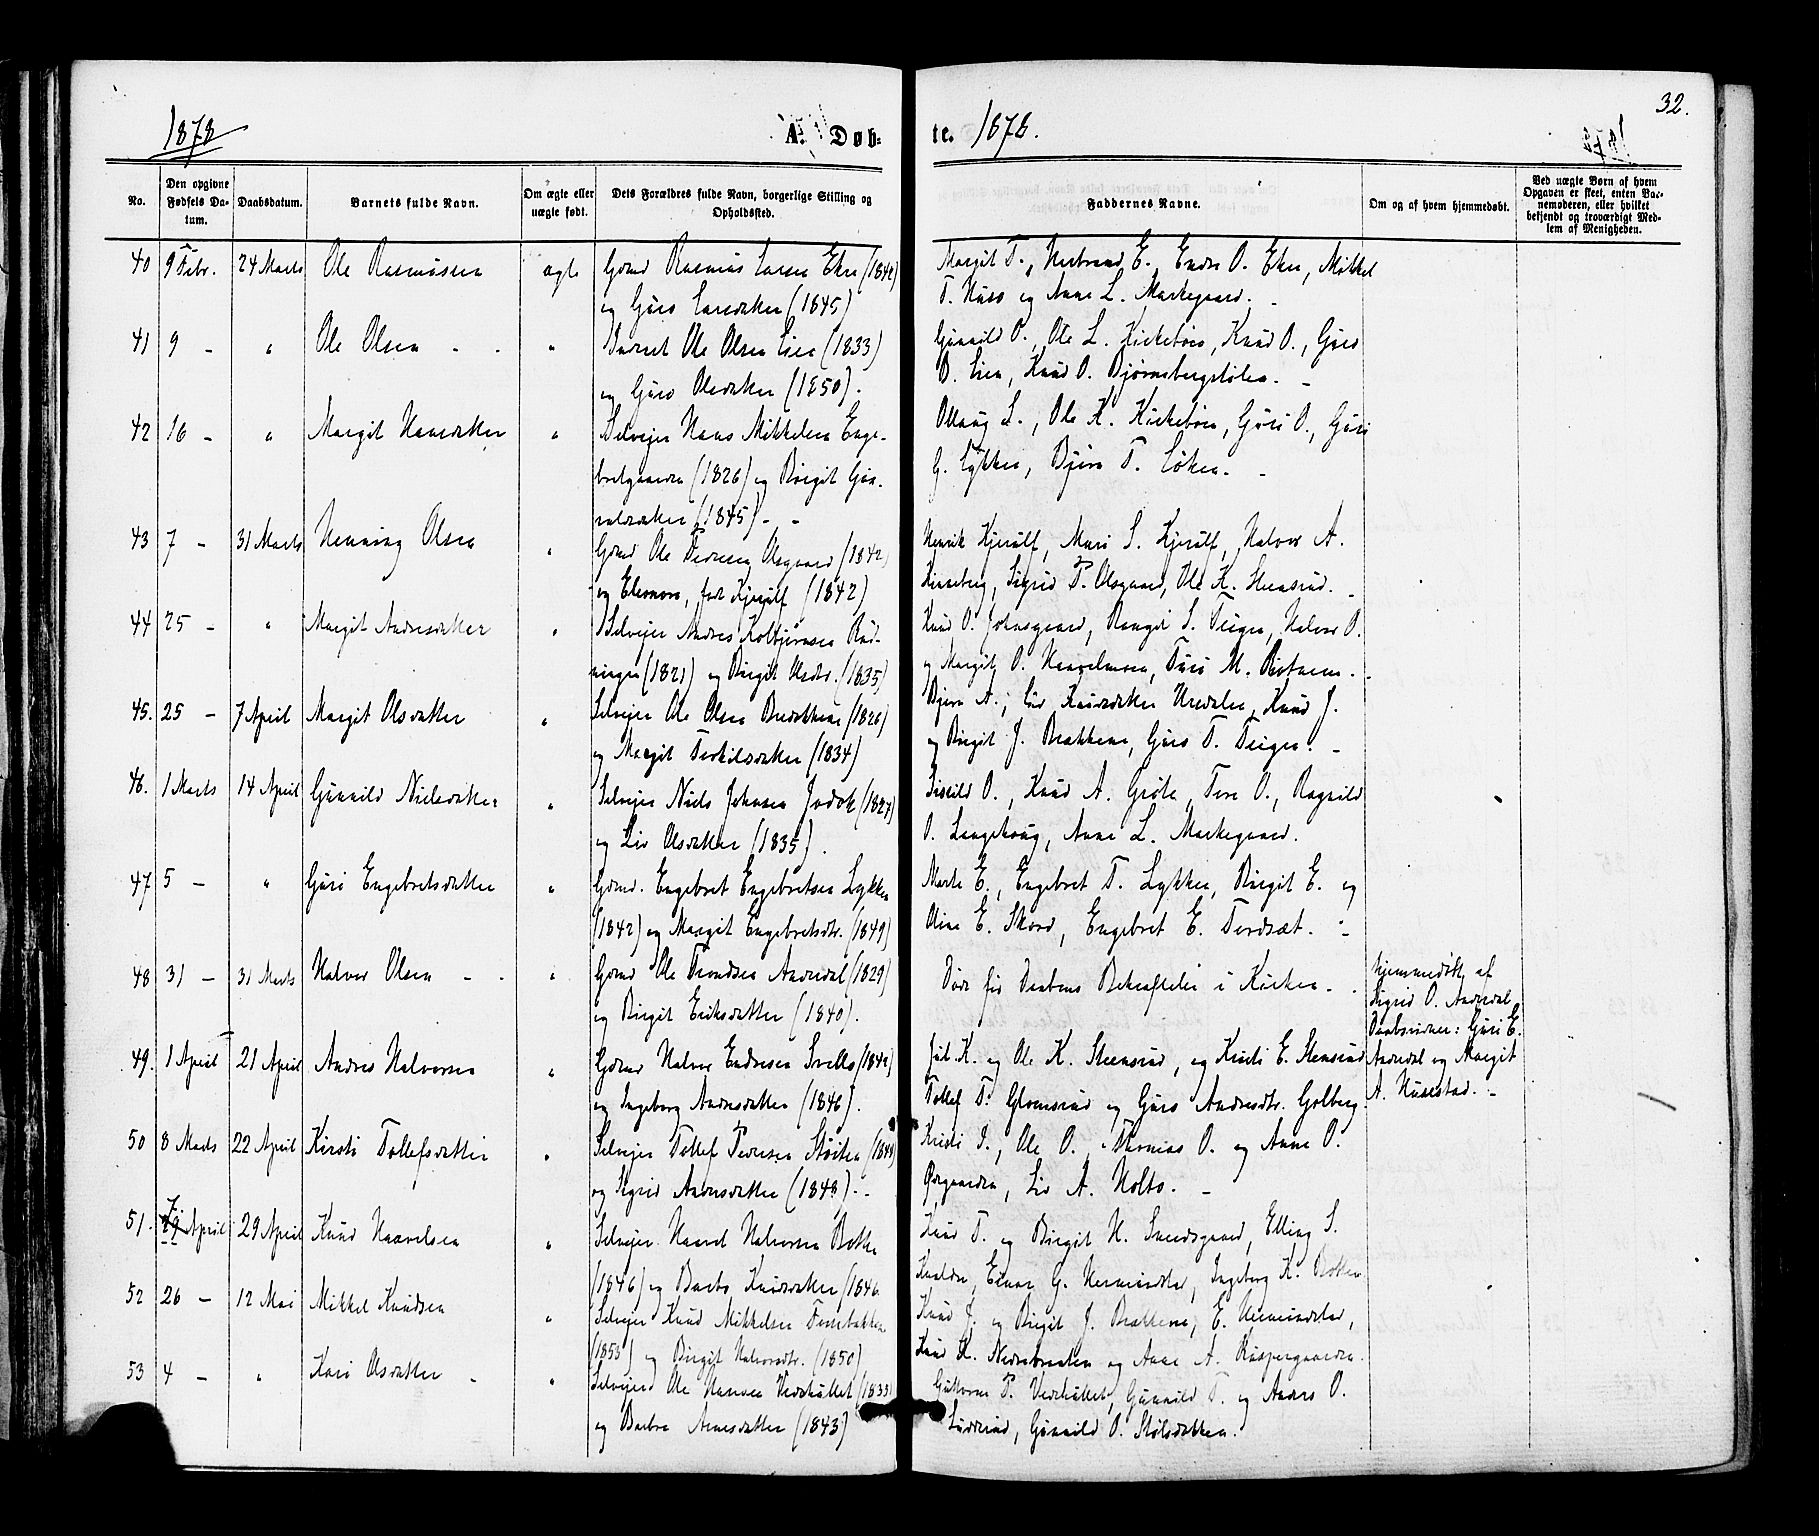 32.
1878
A. Døb-
te. 1878.
No.
Den opgivne
Fødsels Da-
tum.
Daabsdatum.
Barnets fulde Navn.
Om ægte eller
uægte født.
Dets Forældres fulde Navn, borgerlige Stilling og
Opholdssted.
Faddernes Navne.
Om og af hvem hjemmedøbt.
Ved uægte Børn af hvem
Opgaven er skeet, enten Bar-
nemoderen, eller hvilket
bekjendt og troværdigt Med-
lem af Menigheden.
40 9 Febr. 24 Marts Ole Rasmussen ægte Gbrd Rasmus Larsen Eker (1842)
og Guro Larsdatter (1845)
Margit T., Herbrand E., Endre O. Eker, Mikkel
T. Huso og Anne L. Markegaard. -
41 9 - " Ole Olsen - - " Inderst Ole Olsen Lien (1833)
og Guro Olsdatter (1850).
Gunnild O., Ole L. Kirkebøen, Knud O., Guro
O. Lien, Knud O. Bjørnebergstølen. -
42 16 - " Margit Hansdatter " Selvejer Hans Mikkelsen Enge-
bretgaarden (1826) og Birgit Gun-
(1845) - -
Ollaug L., Ole K. Kirkebøen, Guri O., Guri
G. Lykken, Bjørn T. Løken. -
43 7 - 31 Marts Henning Olsen " Gbrd Ole Olsgaard (1842)
og Eleonora, født Kjerulf (1842)
Henrik Kjerulf, Mari S. Kjerulf, Halvor A.
Sigrid P. Olsgaard, Ole K. Steensrud. -
44 25 - " Margit Andresdatter " Selvejer Andres Kolbjørnsen Rud-
ningen (1821) og Birgit (1835)
Knud O. Johnsgaard, Rangdi S. Teigen, Halvor O.
og Margit O. Haavelmoen, Turi M. -
45. 25 - 7 April Margit Olsdatter " Selvejer Ole Olsen Brækkene (1826)
og Margit Torkilsdatter (1834)
Bjørn A., Liv Knudsdatter Knud J.
og Birgit J. Brækkene, Guro T. Teigen. -
46. 1 Marts 14 April Gunnild Nielsdatter " Selvejer Niels Johnsen (1827)
og Liv Olsdatter (1835).
O., Knud A. Grøte, Tore O., Ragnild
O. Langehaug, Anne L. Markegaard.
47 5 - " Guri Engebretsdatter " Gbrd. Engebret Engebretsen Lykken
(1842) og Margit Engebretsdtr. (1849)
Marte E., Engebret T. Lykken, Birgit E. og
Oline E. Skoro, Engebret E. Tordsæt. -
48 31 - 31 Marts Halvor Olsen - - " Gbrd Ole Trondsen Aaredal (1829)
og Birgit Eriksdatter (1840).
Døde før Daabens Bekræftelse i Kirken - .
Hjemmedøbt af
Sigrid O. Aaredal
Daabsvidner: Guri E.
Aaredal og Margit
A. -
49. 1 April 21 April Andres Halvorsen " Gbrd Halvor Endresen (1842)
og Ingeborg Andresdatter (1846).
Jul K. og Ole K. Steensrud, og Kristi E. Stensrud
Tollef T. Glomsrud og Guro Andresdtr. Golberg.
50 8 Marts 22 April Kirsti Tollefsdatter " Selvejer Tollef Pedersen Støiten (1848)
og Sigrid (1848). -
Kristi I., Ole O., Thomas O. og Anne O.
Liv A. Holto. -
51. 7 29 April 29 April Knud Haavelsen " Selvejer Haavel Halvorsen
(1846) og Knudsdatter (1846
Knud T. og Birgit H. Sundsgaard, Elling S.
Einar G. Ingeborg K.
52 26 - 12 Mai Mikkel Knudsen " Selvejer Knud Mikkelsen
(1853) og Birgit Halvorsdtr. (1850)
Knud J. og Birgit J. Brækkene, E.
Knud K. Nedrebraaten og Anne A.
53 4 - " Kari Olsdatter - " Selvejer Ole Hansen (1833)
og Barbro Arnesdatter (1843)
Guttorm P. Gunnild T. og Anders O.
Gunnild O.